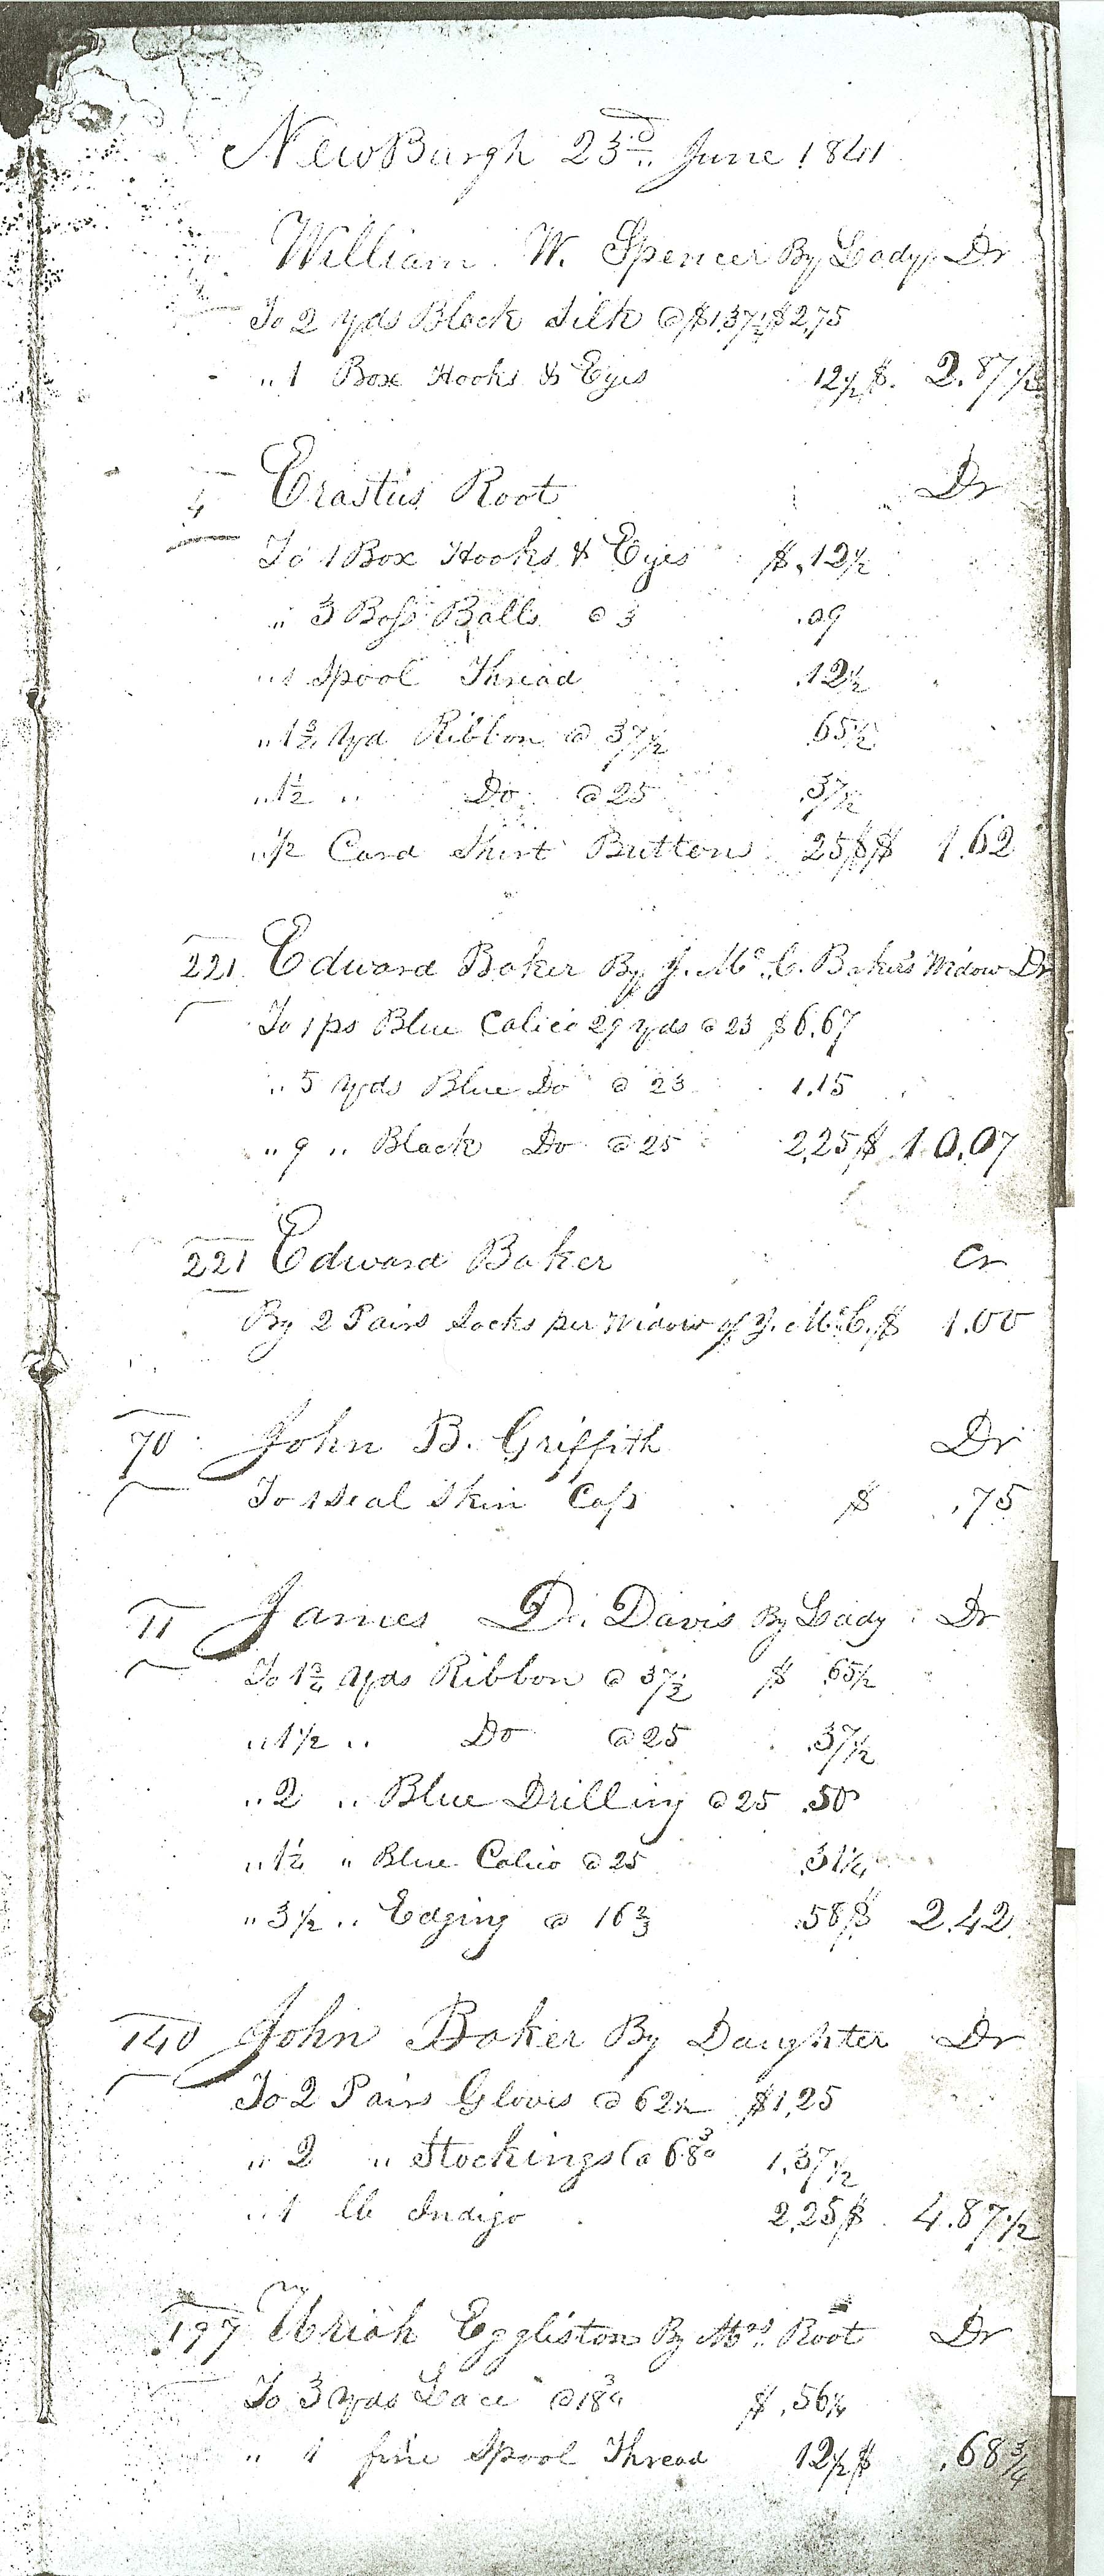 NewBurgh 23rd June 1841
William W. Spencer By Lady Dr
To 2 yds Black Silk @ $1.37½ $2.75
" 1 Box Hooks & Eyes 12½ $. 2.87½
4 Erastus Root Dr
To 1 Box Hooks & Eyes $.12½
" 3 Boss Balls @ 3 .09
" 1 Spool Thread .12½
" 1¾ Yd Ribbon @ 37½ .65½
" 1½ " Do @ 25 .37½
" ½ Card Shirt Buttons 25 $ $ 1.62
221 Edward Baker By J. Mc. C. Baker's Widow Dr
To 1 ps Blue Calico 29 yds @ 23 $6.67
" 5 Yds Blue Do @ 23 1.15
" 9 " Black Do @ 25 2.25 $ 10.07
221 Edward Baker Cr
By 2 Pairs Socks per Widow of J. Mc. C. $ 1.00
70 John B. Griffith Dr
To 1 Seal Skin Cap $ .75
11 James D. Davis By Lady Dr
To 1¾ Yds Ribbon @ 37½ $ .65½
" 1½ " Do @ 25 .37½
" 2 " Blue Drilling @ 25 .50
" 1¼ " Blue Calico @ 25 .31¼
" 3½ " Edging @ 16⅔ .58 $ 2.42
140 John Baker By Daughter Dr
To 2 Pairs Gloves @ 62½ $1.25
" 2 " Stockings @ 68¾ 1.37½
" 1 lb Indigo 2.25 $ 4.87½
197 Uriah Eggliston By Mrs. Root Dr
To 3 Yds Lace @ 18¾ $ .56¼
" 1 fine Spool Thread 12½ $ .68¾